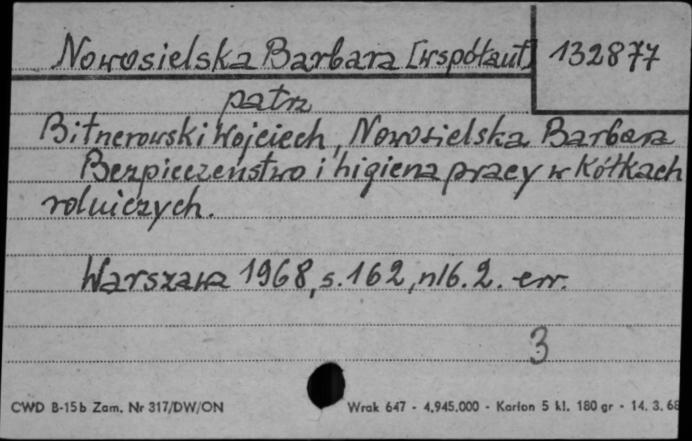 Nowosielska Barbara [współaut] 132877
patrz
Bitnerowski Wojciech, Nowosielska Barbara
Bezpieczeństwo i higiena pracy w Kółkach
rolniczych.
Warszawa 1968, s. 162, nlb. 2. err.
3
CWD B-15b Zam. Nr 317/DW/ON Wrak 647 - 4.945.000 - Karton 5 kl. 180 gr - 14. 3. 68